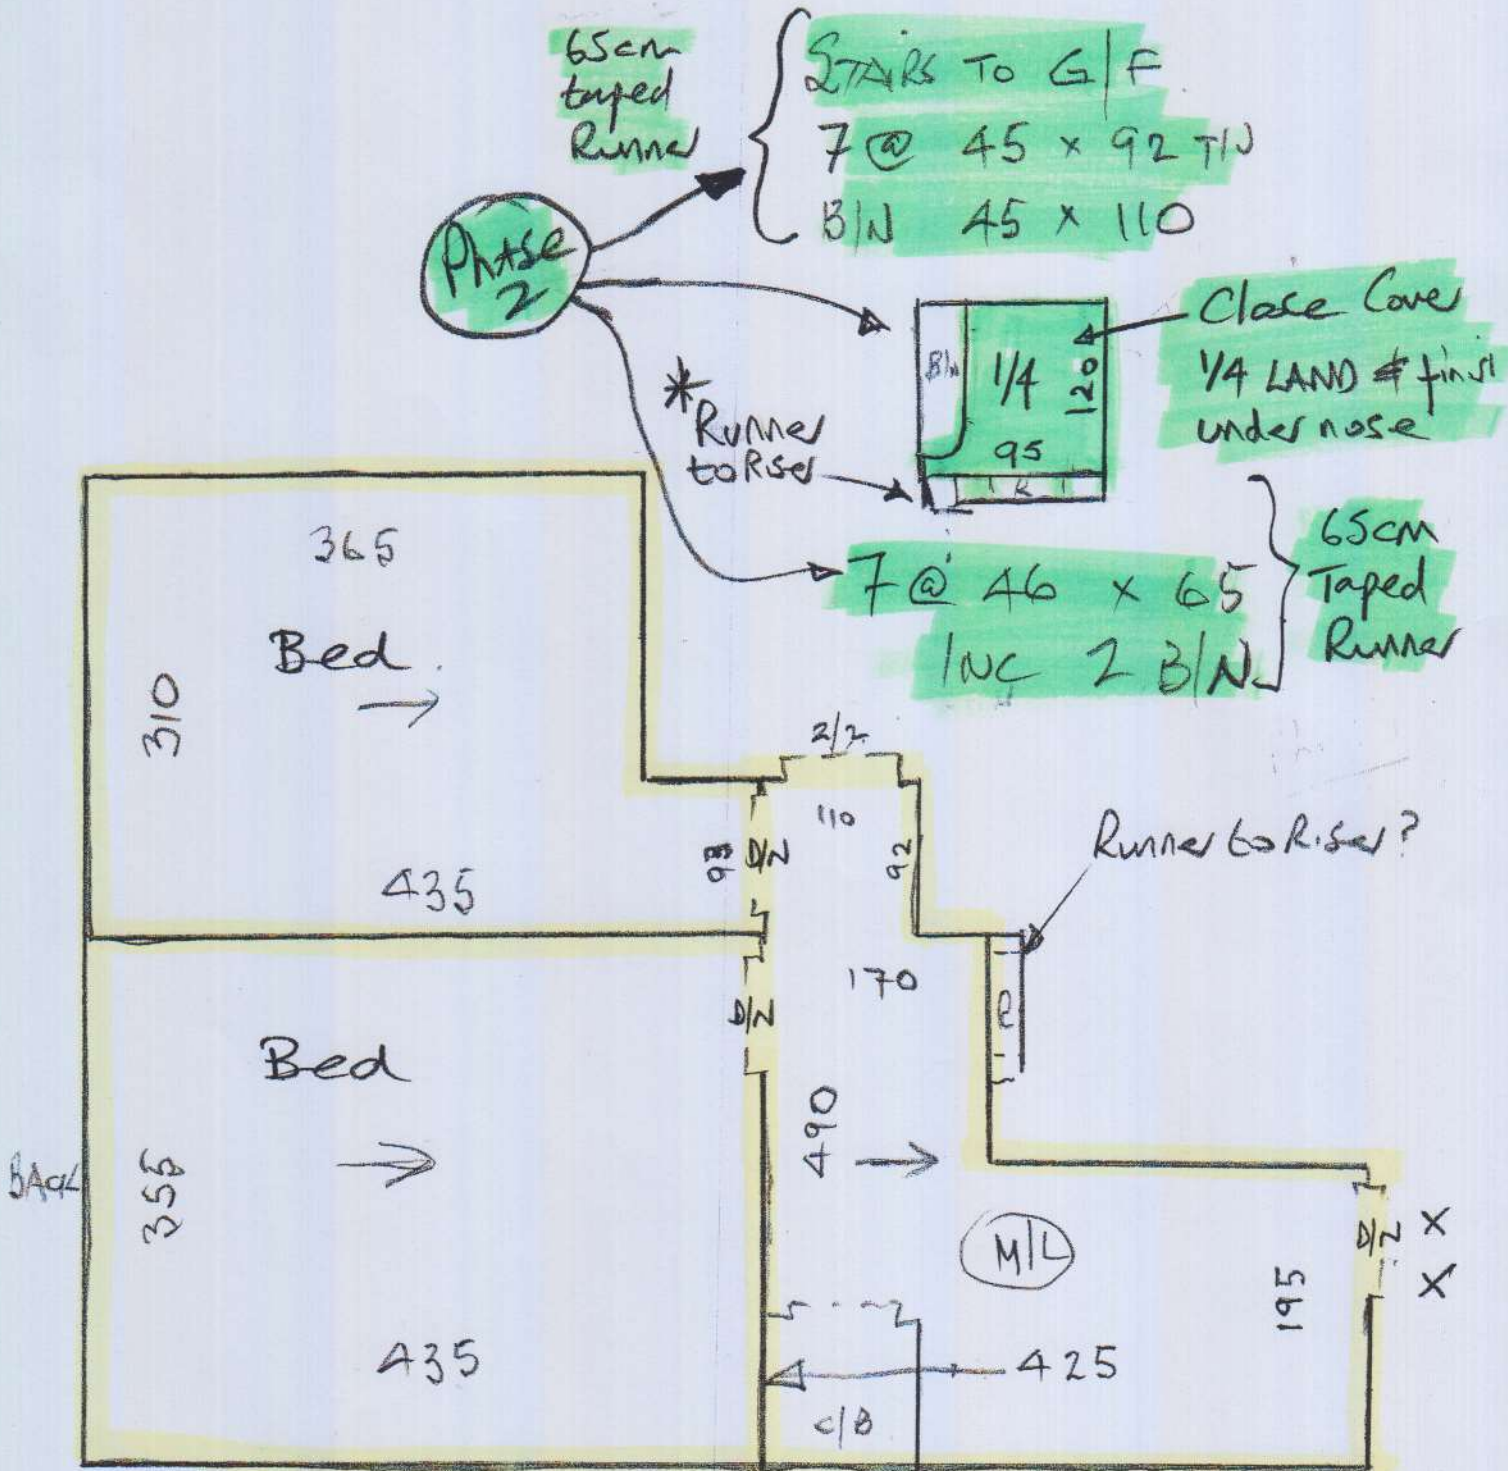 65cm
taped
Runner
STAIRS TO G/F
7 @ 45 x 92 T/N
B/N 45 x 110
Phase
2
B/N
1/4
120
95
R
Close Cover
1/4 LAND & finish
under nose
*
Runner
to Riser
7 @ 46 x 65
INC 2 B/N
65cm
Taped
Runner
365
Bed
310
435
93
D/Z
2/2
110
92
Runner to Riser?
170
R
D/Z
Bed
490
BACK
355
M/L
D/Z
X
X
195
435
425
C/B